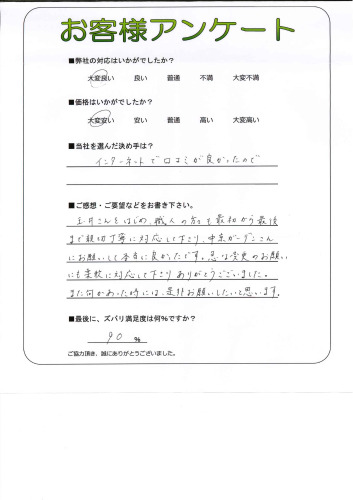 お客様アンケート
■弊社の対応はいかがでしたか?
大変良い 良い 普通 不満 大変不満
■価格はいかがでしたか?
大変安い 安い 普通 高い 大変高い
■当社を選んだ決め手は?
インターネットで口コミが良かったので
■ご感想・ご要望などをお書き下さい。
玉井さんをはじめ、職人の方も最初から最後
まで親切丁寧に対応して下さり、中京ガーデンさん
にお願いして本当に良かったです。急な変更のお願い
にも柔軟に対応して下さりありがとうございました。
また何かあった時には、是非お願いしたいと思います。
■最後に、ズバリ満足度は何%ですか?
90 %
ご協力頂き、誠にありがとうございました。